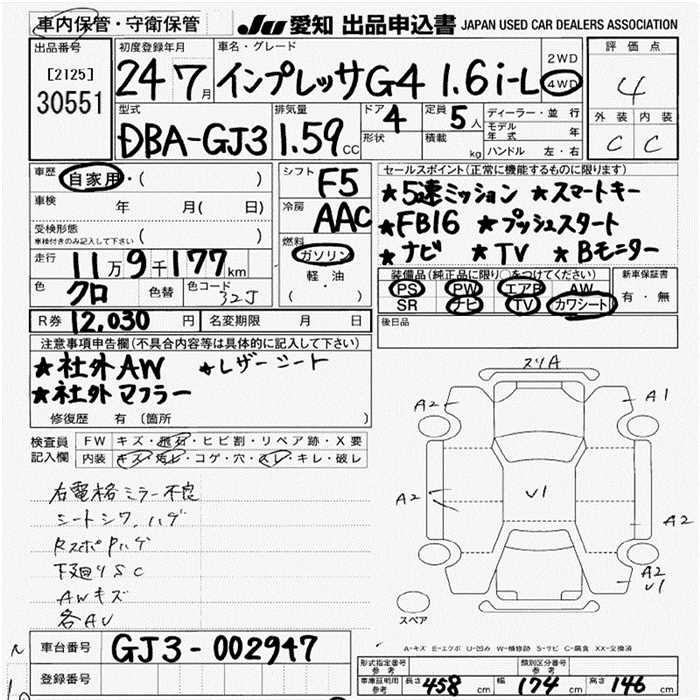 車内保管・守衛保管
JU 愛知 出品申込書 JAPAN USED CAR DEALERS ASSOCIATION
出品番号 [2125] 30551
初度登録年月 24 7月
車名・グレード インプレッサG4 1.6i-L
2WD 4WD
評価点 4
外装 C 内装 C
型式 DBA-GJ3
排気量 1.59 CC
ドア 4 形状
定員 5人 積載 kg
ディーラー・並行
モデル年式 年
ハンドル 左・右
車歴 自家用・( )
車検 年 月( 日)
受検形態 車検付きのみ記入して下さい ( )
走行 11万9千177km
色 クロ 色替 色コード 32J
シフト F5
冷房 AAC
燃料 ガソリン
軽・油
( ・ )
セールスポイント(正常に機能するものに限ります)
★5速ミッション ★スマートキー
★FB16 ★プッシュスタート
★ナビ ★TV ★Bモニター
装備品(純正品に限り○をつけてください) 新車保証書
PS PW エアB AW 有・無
SR ナビ TV カワシート
R券 12,030円 名変期限 月 日
後日品
注意事項申告欄(不具合内容等は具体的に記入して下さい)
★社外AW ★レザーシート
★社外マフラー
修復歴 有 〔箇所 〕
検査員記入欄
FW キズ・飛石・ヒビ割・リペア跡・X要
内装 キズ・汚レ・コゲ・穴・スレ・キレ・破レ
右電格ミラー不良
シートシワ、ハゲ
RスポPハゲ
下廻りSC
AWキズ
各AU
スリA
A2 A1
A2 U1 A2
A2
U1
スペア
A-キズ E-エクボ U-凹み W-補修跡 S-サビ C-腐食 XX-交換済
車台番号 GJ3-002947
登録番号
形式指定番号 参考 類別区分番号 参考
車庫証明用 参考 長さ 458 cm 幅 174 cm 高さ 146 cm